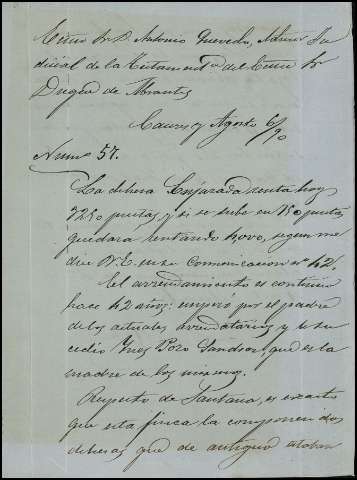 Excmo Sr D. Antonio Quevedo, Admor Ju
dicial de la Testamentª del Excmo Sr
Duque de Abrantes
Caceres y Agosto 6/90
Numº 57.
La dehesa Enjarada renta hoy
7250 ptas, y si se sube en 750 ptas
quedará rentando 8,000, segun me
dice V. E. en su comunicacion nº 42.
El arrendamiento es continuo
hace 42 años: empezó por el padre
de los actuales arrendatarios y le su
cedió Ines Pozo Sandoz, que es la
madre de los mismos.
Respecto de Santana, es exacto
que esta finca la componen dos
dehesas que de antiguo estaban